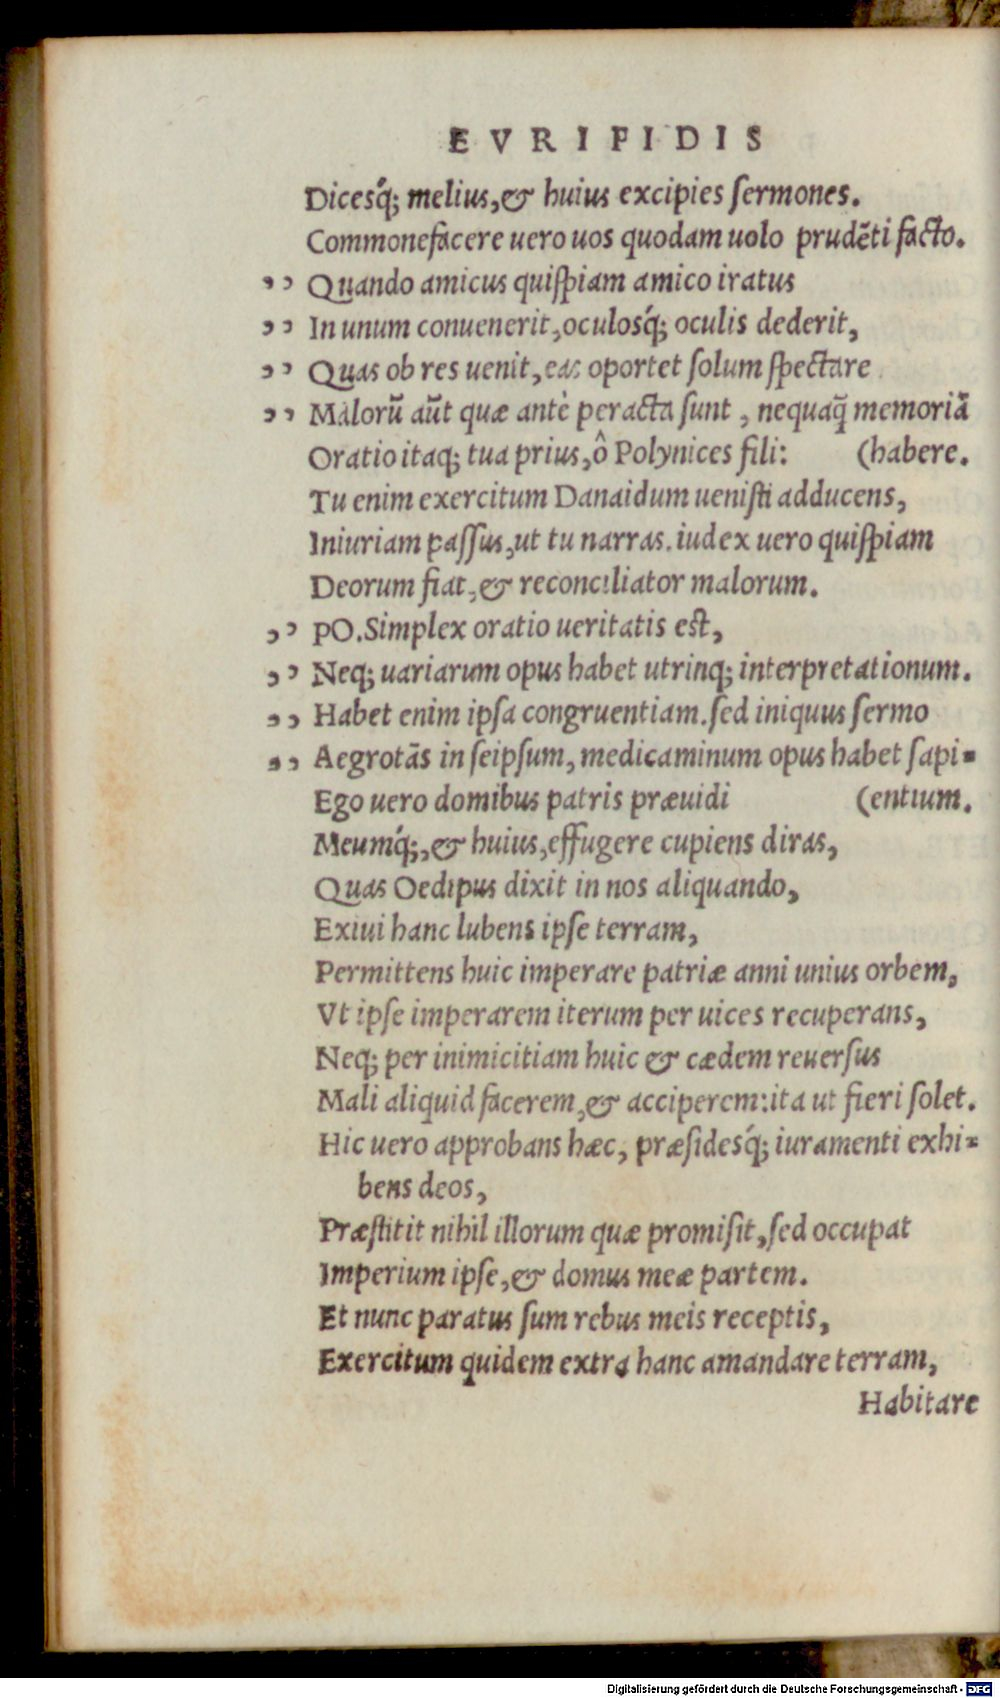 EVRIPIDIS
Dicesq́; melius, & huius excipies ſermones.
Commonefacere uero uos quodam uolo prudẽti facto.
,, Quando amicus quiſpiam amico iratus
,, In unum conuenerit, oculosq́; oculis dederit,
,, Quas ob res uenit, eas oportet ſolum ſpectare
,, Malorũ aũt quæ antè peracta ſunt, nequaq̃ memoriã
Oratio itaq; tua prius, ô Polynices fili: (habere.
Tu enim exercitum Danaidum ueniſti adducens,
Iniuriam paſſus, ut tu narras. iudex uero quiſpiam
Deorum fiat, & reconciliator malorum.
,, PO. Simplex oratio ueritatis est,
,, Neq; uariarum opus habet utrinq; interpretationum.
,, Habet enim ipſa congruentiam. ſed iniquus ſermo
,, Aegrotãs in ſeipſum, medicaminum opus habet ſapi-
Ego uero domibus patris præuidi (entium.
Meumq́;, & huius, effugere cupiens diras,
Quas Oedipus dixit in nos aliquando,
Exiui hanc lubens ipſe terram,
Permittens huic imperare patriæ anni unius orbem,
Vt ipſe imperarem iterum per uices recuperans,
Neq; per inimicitiam huic & cædem reuerſus
Mali aliquid facerem, & acciperem: ita ut fieri ſolet.
Hic uero approbans hæc, præſidesq́; iuramenti exhi-
bens deos,
Præſtitit nihil illorum quæ promiſit, ſed occupat
Imperium ipſe, & domus meæ partem.
Et nunc paratus ſum rebus meis receptis,
Exercitum quidem extra hanc amandare terram,
Habitare
Digitalisierung gefördert durch die Deutsche Forschungsgemeinschaft - DFG